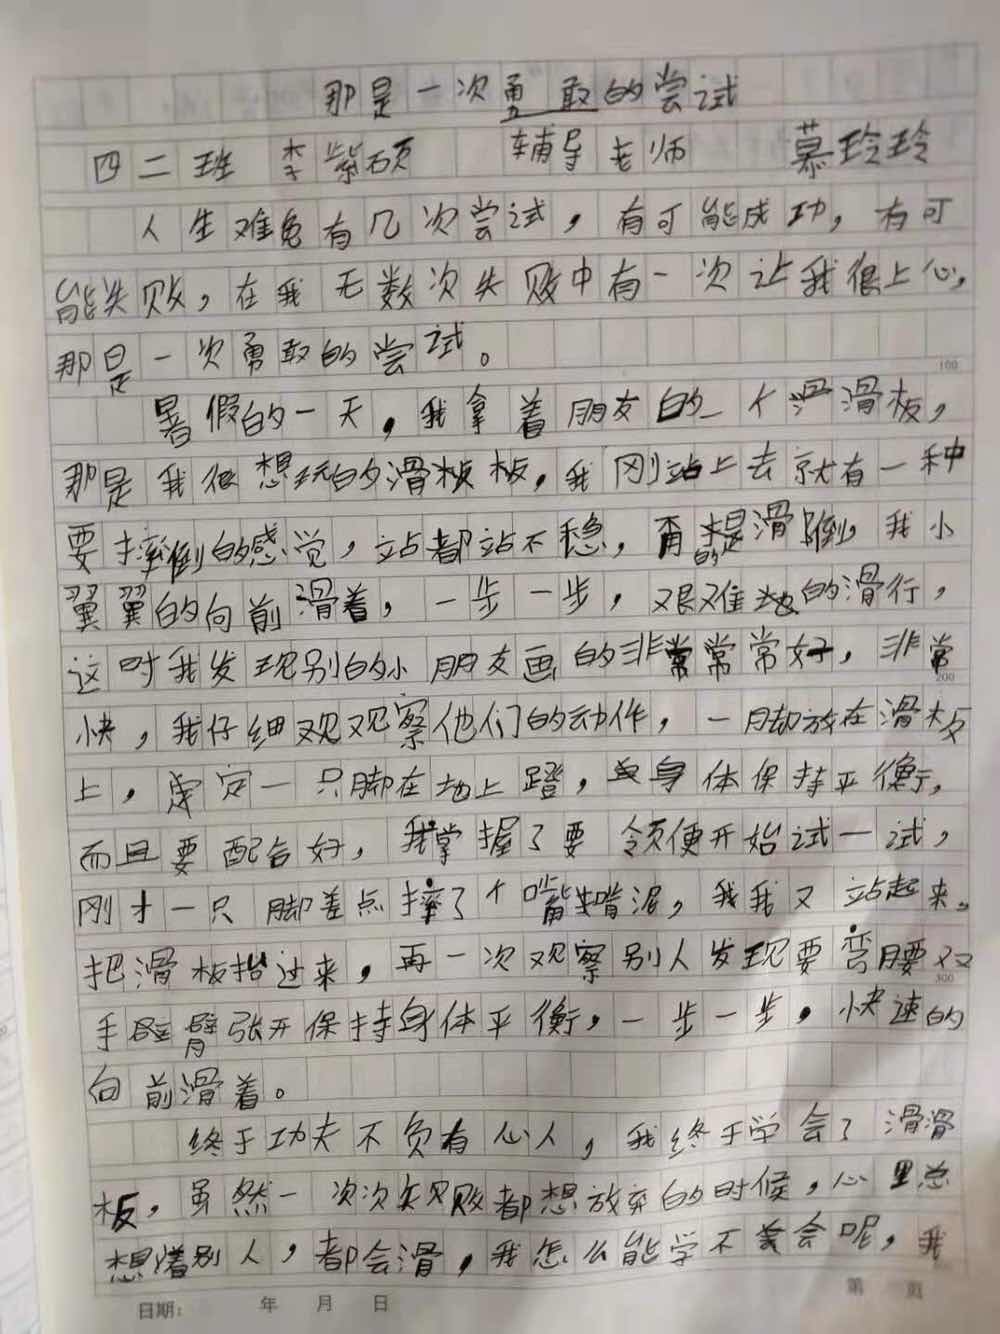 那是一次勇敢的尝试
四二班 李紫硕 辅导老师 慕玲玲
人生难免有几次尝试，有可能成功，有可
能失败，在我无数次失败中有一次让我很上心，
那是一次勇敢的尝试。
100
暑假的一天，我拿着朋友的一个滑滑板，
那是我很想玩的滑板板，我刚站上去就有一种
要摔倒的感觉，站都站不稳，再提滑倒，我小
翼翼的向前滑着，一步一步，艰难地的滑行，
这时我发现别的小朋友画的非常常常好，非常
200
快，我仔细观观察他们的动作，一脚放在滑板
上，定一只脚在地上蹬，身体保持平衡，
而且要配合好，我掌握了要领便开始试一试，
刚才一只脚差点摔了个嘴啃泥，我我又站起来，
把滑板抬过来，再一次观察别人发现要弯腰双
300
手臂臂张开保持身体平衡，一步一步，快速的
向前滑着。
终于功夫不负有心人，我终于学会了滑滑
板，虽然一次次失败都想放弃的时候，心里总
想着别人，都会滑，我怎么能学不会呢，我
日期： 年 月 日
第 页